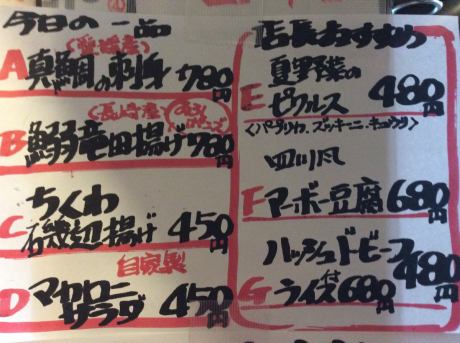 今日の一品
(愛媛産)
A 真鯛の刺身 780円
(長崎産)
B 鰯竜田揚げ 780円
C ちくわ
磯辺揚げ 450円
自家製
D マカロニ
サラダ 450円
店長おすすめ
夏野菜の
E ピクルス 480円
<パプリカ、ズッキーニ、キュウリ>
四川風
F マーボー豆腐 680円
ハッシュドビーフ 480円
G ライス付 680円